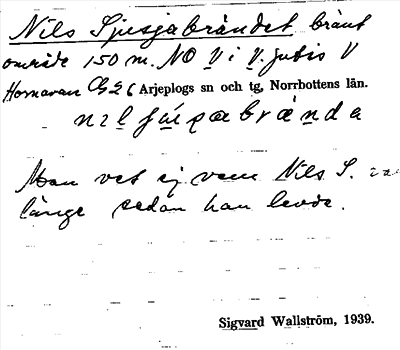 Nils Sjusjabrändet bränt
område 150 m. NO V i V. Jutis V
Hornavan G 26 Arjeplogs sn och tg, Norrbottens län.
Man vet ej vem Nils S.
länge sedan han levde.
Sigvard Wallström, 1939.